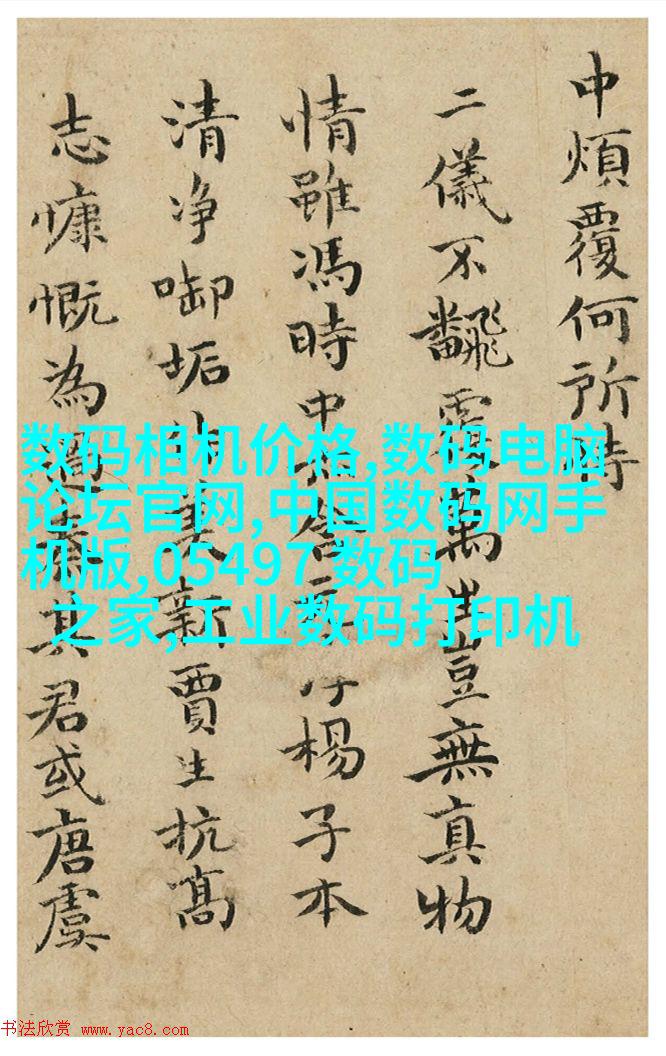 中煩覆何所
二儀不飜覆萬生豈無真物
情雖馮時中楊子本
清净啣垢美新賈生抗高
志慷慨為其君或唐虞
数码相机价格,数码电脑
论坛官网,中国数码网手
机版,05497 数码
之家,工业数码打印机
书法欣赏 www.yac8.com